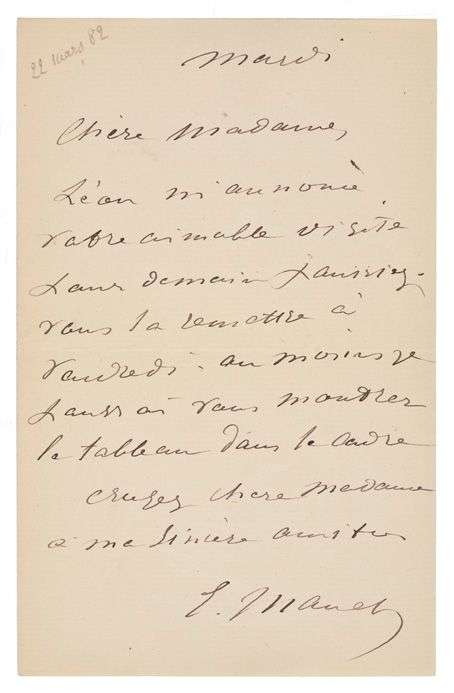 22 mars 82
Mardi
Chère Madame,
Léon m'annonce
votre aimable visite
pour demain pourriez-
vous la remettre à
vendredi. au moins je
pourrai vous montrer
le tableau dans le cadre
croyez chère Madame
à ma sincère amitié
E. Manet